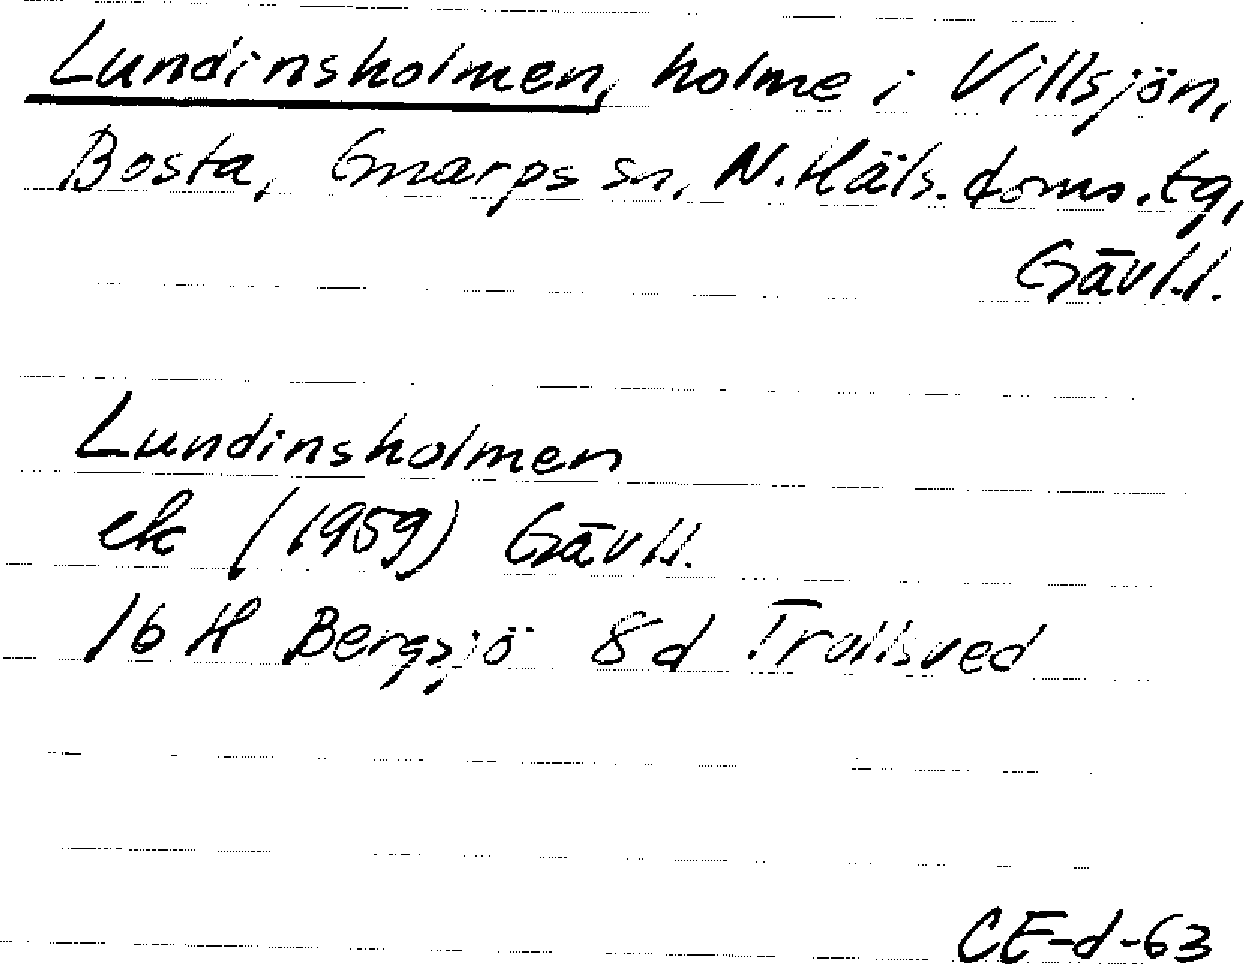 Lundinsholmen, holme i Villsjön,
Bosta, Gnarps sn, N. Häls. doms. tg,
Gävl.l.
Lundinsholmen
ek (1959) Gävl.l.
16 H Bergsjö 8d Trollsved
CE-d-63